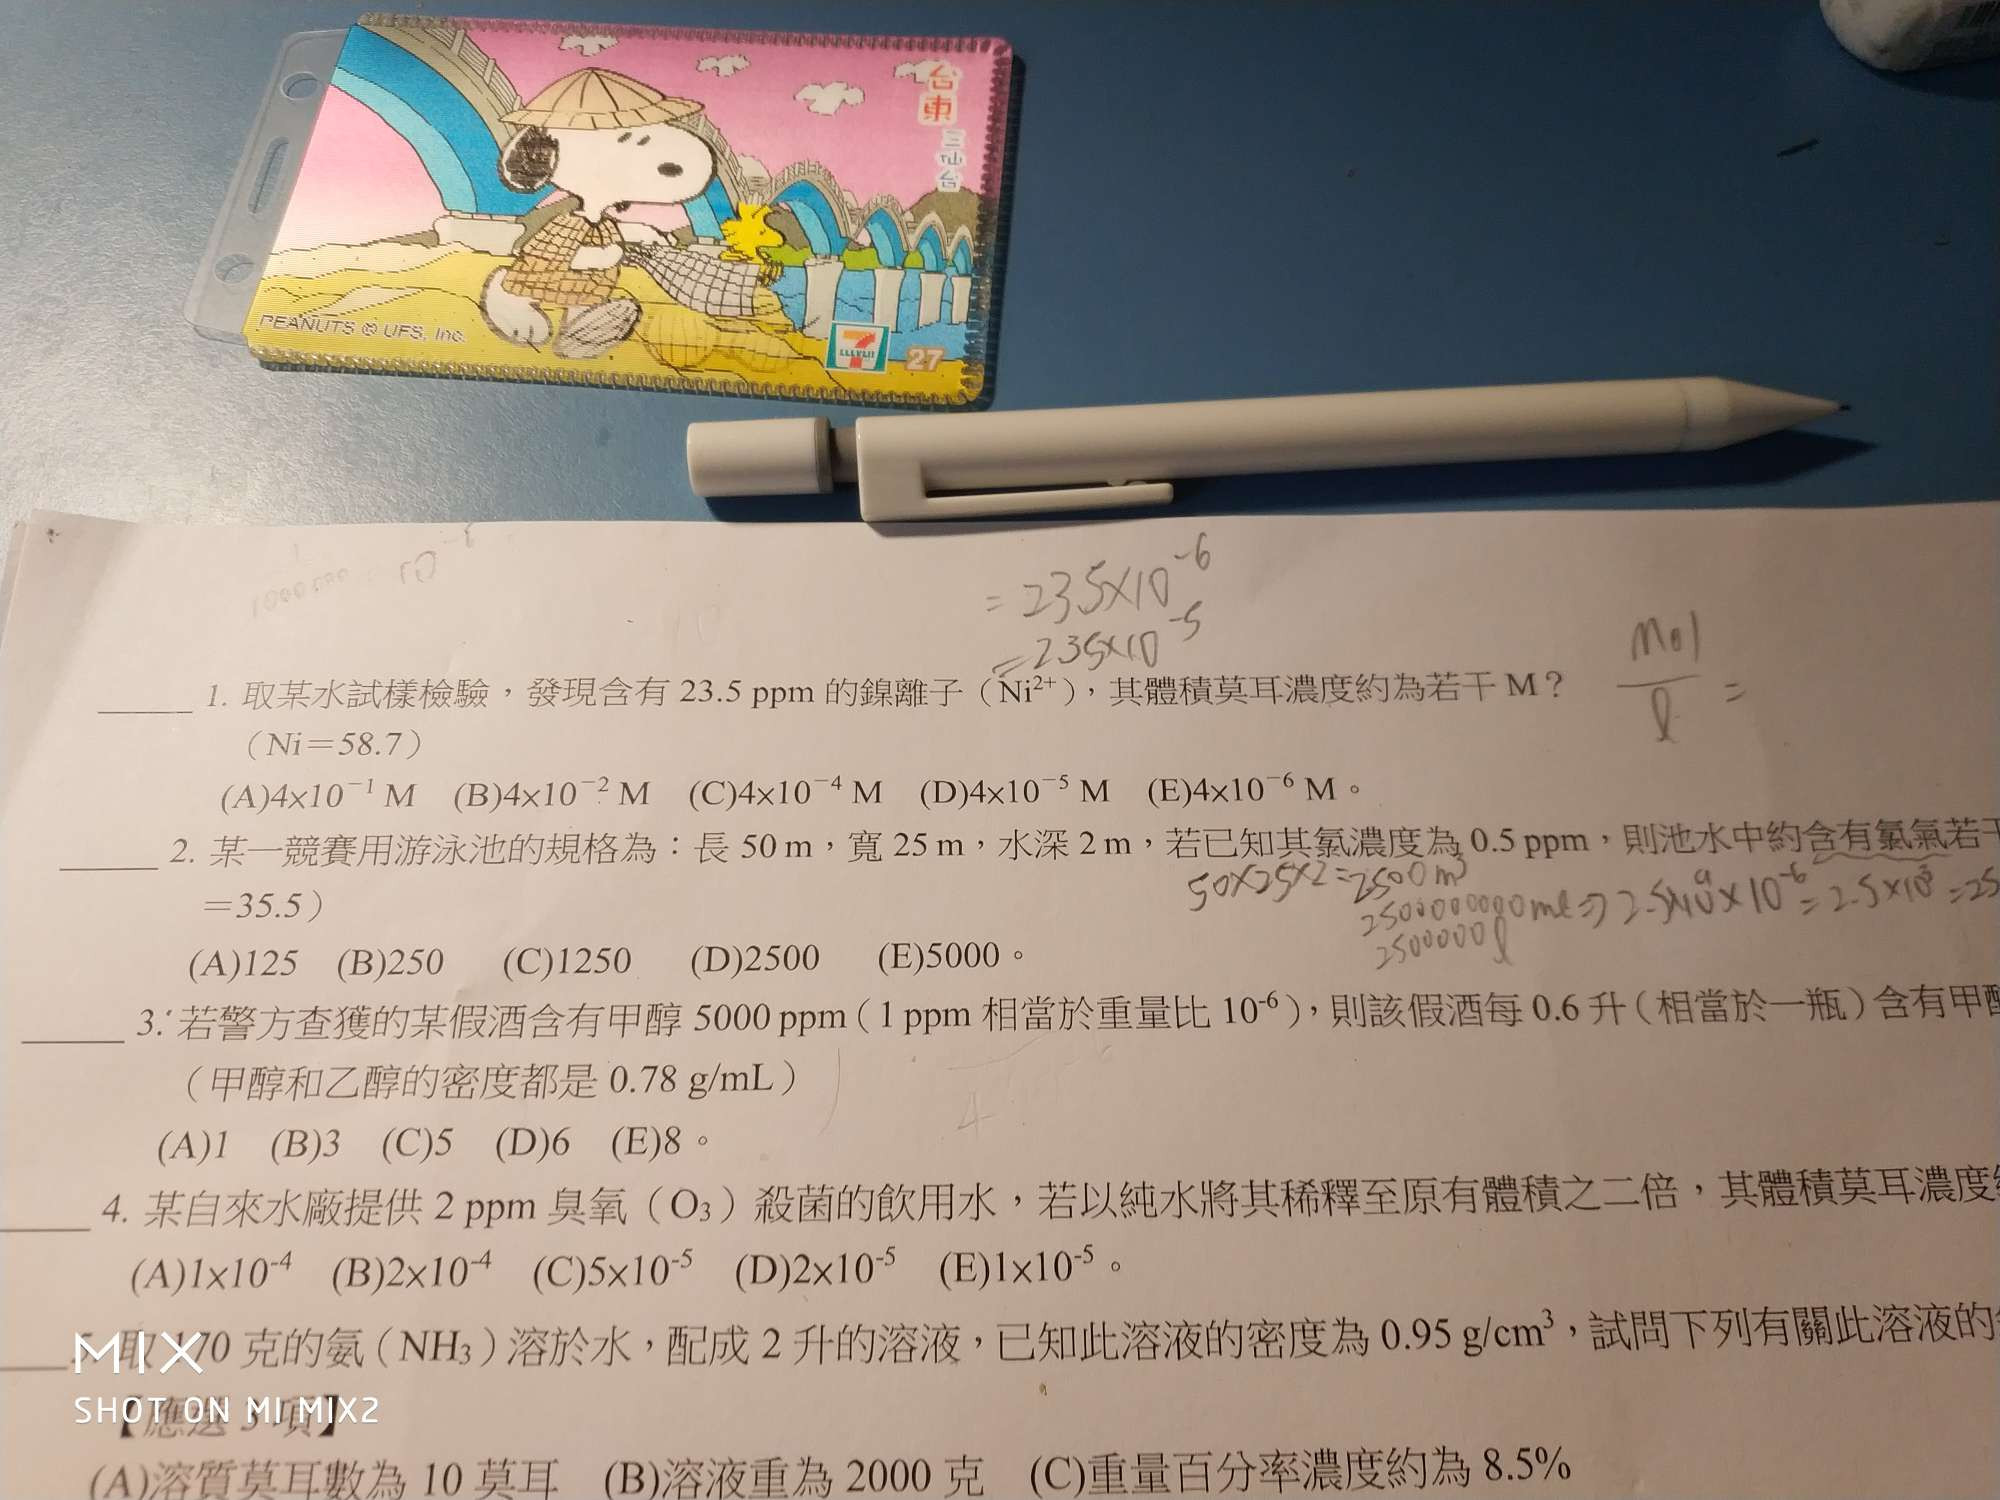 台東
三仙台
PEANUTS © UFS, Inc.
7
ELEVEN
27
= 23.5×10⁻⁶
= 235×10⁻⁵
_____ 1. 取某水試樣檢驗，發現含有 23.5 ppm 的鎳離子（Ni²⁺），其體積莫耳濃度約為若干 M？
mol/l =
（Ni＝58.7）
(A)4×10⁻¹ M (B)4×10⁻² M (C)4×10⁻⁴ M (D)4×10⁻⁵ M (E)4×10⁻⁶ M。
_____ 2. 某一競賽用游泳池的規格為：長 50 m，寬 25 m，水深 2 m，若已知其氯濃度為 0.5 ppm，則池水中約含有氯氣若干
50×25×2=2500m³
＝35.5）
2500000000ml⇒ 2.5×10⁹×10⁻⁶=2.5×10³=25
2500000l
(A)125 (B)250 (C)1250 (D)2500 (E)5000。
_____ 3. 若警方查獲的某假酒含有甲醇 5000 ppm（1 ppm 相當於重量比 10⁻⁶），則該假酒每 0.6 升（相當於一瓶）含有甲醇
（甲醇和乙醇的密度都是 0.78 g/mL）
(A)1 (B)3 (C)5 (D)6 (E)8。
_____ 4. 某自來水廠提供 2 ppm 臭氧（O₃）殺菌的飲用水，若以純水將其稀釋至原有體積之二倍，其體積莫耳濃度
(A)1×10⁻⁴ (B)2×10⁻⁴ (C)5×10⁻⁵ (D)2×10⁻⁵ (E)1×10⁻⁵。
_____ 5. 取 170 克的氨（NH₃）溶於水，配成 2 升的溶液，已知此溶液的密度為 0.95 g/cm³，試問下列有關此溶液的
【應選 3 項】
(A)溶質莫耳數為 10 莫耳 (B)溶液重為 2000 克 (C)重量百分率濃度約為 8.5%
MIX
SHOT ON MI MIX2